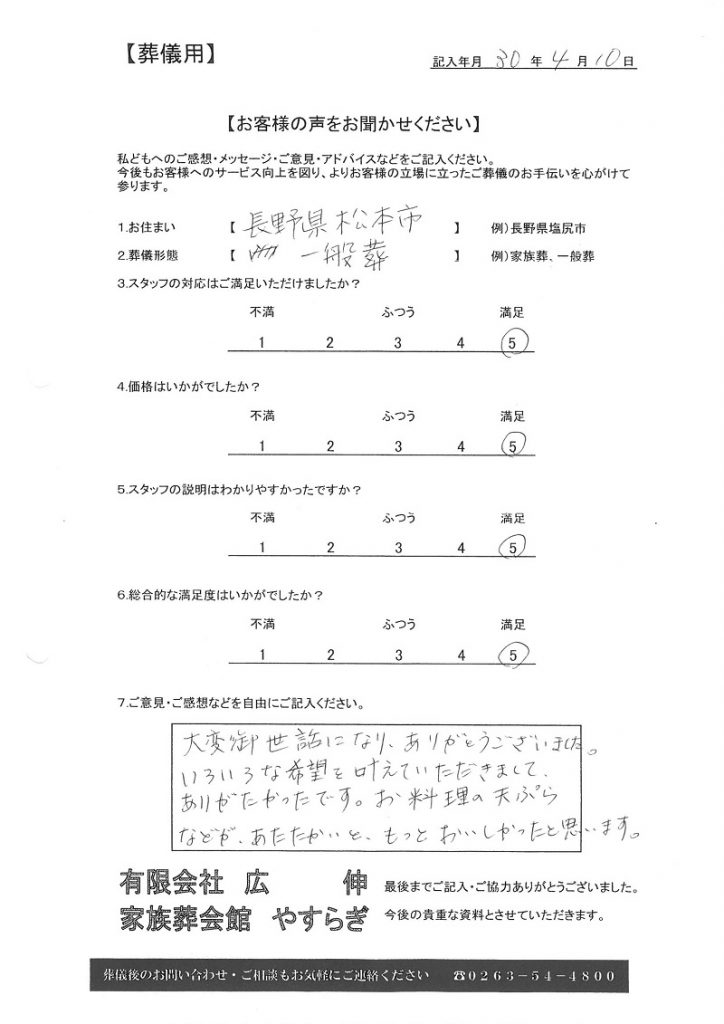 【葬儀用】
記入年月 30 年 4 月 10 日
【お客様の声をお聞かせください】
私どもへのご感想・メッセージ・ご意見・アドバイスなどをご記入ください。
今後もお客様へのサービス向上を図り、よりお客様の立場に立ったご葬儀のお手伝いを心がけて
参ります。
1.お住まい 【 長野県松本市 】 例)長野県塩尻市
2.葬儀形態 【 一般葬 】 例)家族葬、一般葬
3.スタッフの対応はご満足いただけましたか？
不満 ふつう 満足
1 2 3 4 5
4.価格はいかがでしたか？
不満 ふつう 満足
1 2 3 4 5
5.スタッフの説明はわかりやすかったですか？
不満 ふつう 満足
1 2 3 4 5
6.総合的な満足度はいかがでしたか？
不満 ふつう 満足
1 2 3 4 5
7.ご意見・ご感想などを自由にご記入ください。
大変御世話になり、ありがとうございました。
いろいろな希望を叶えていただきまして、
ありがたかったです。お料理の天ぷら
などが、あたたかいと、もっとおいしかったと思います。
有限会社 広 伸 最後までご記入・ご協力ありがとうございました。
家族葬会館 やすらぎ 今後の貴重な資料とさせていただきます。
葬儀後のお問い合わせ・ご相談もお気軽にご連絡ください ☎0263-54-4800